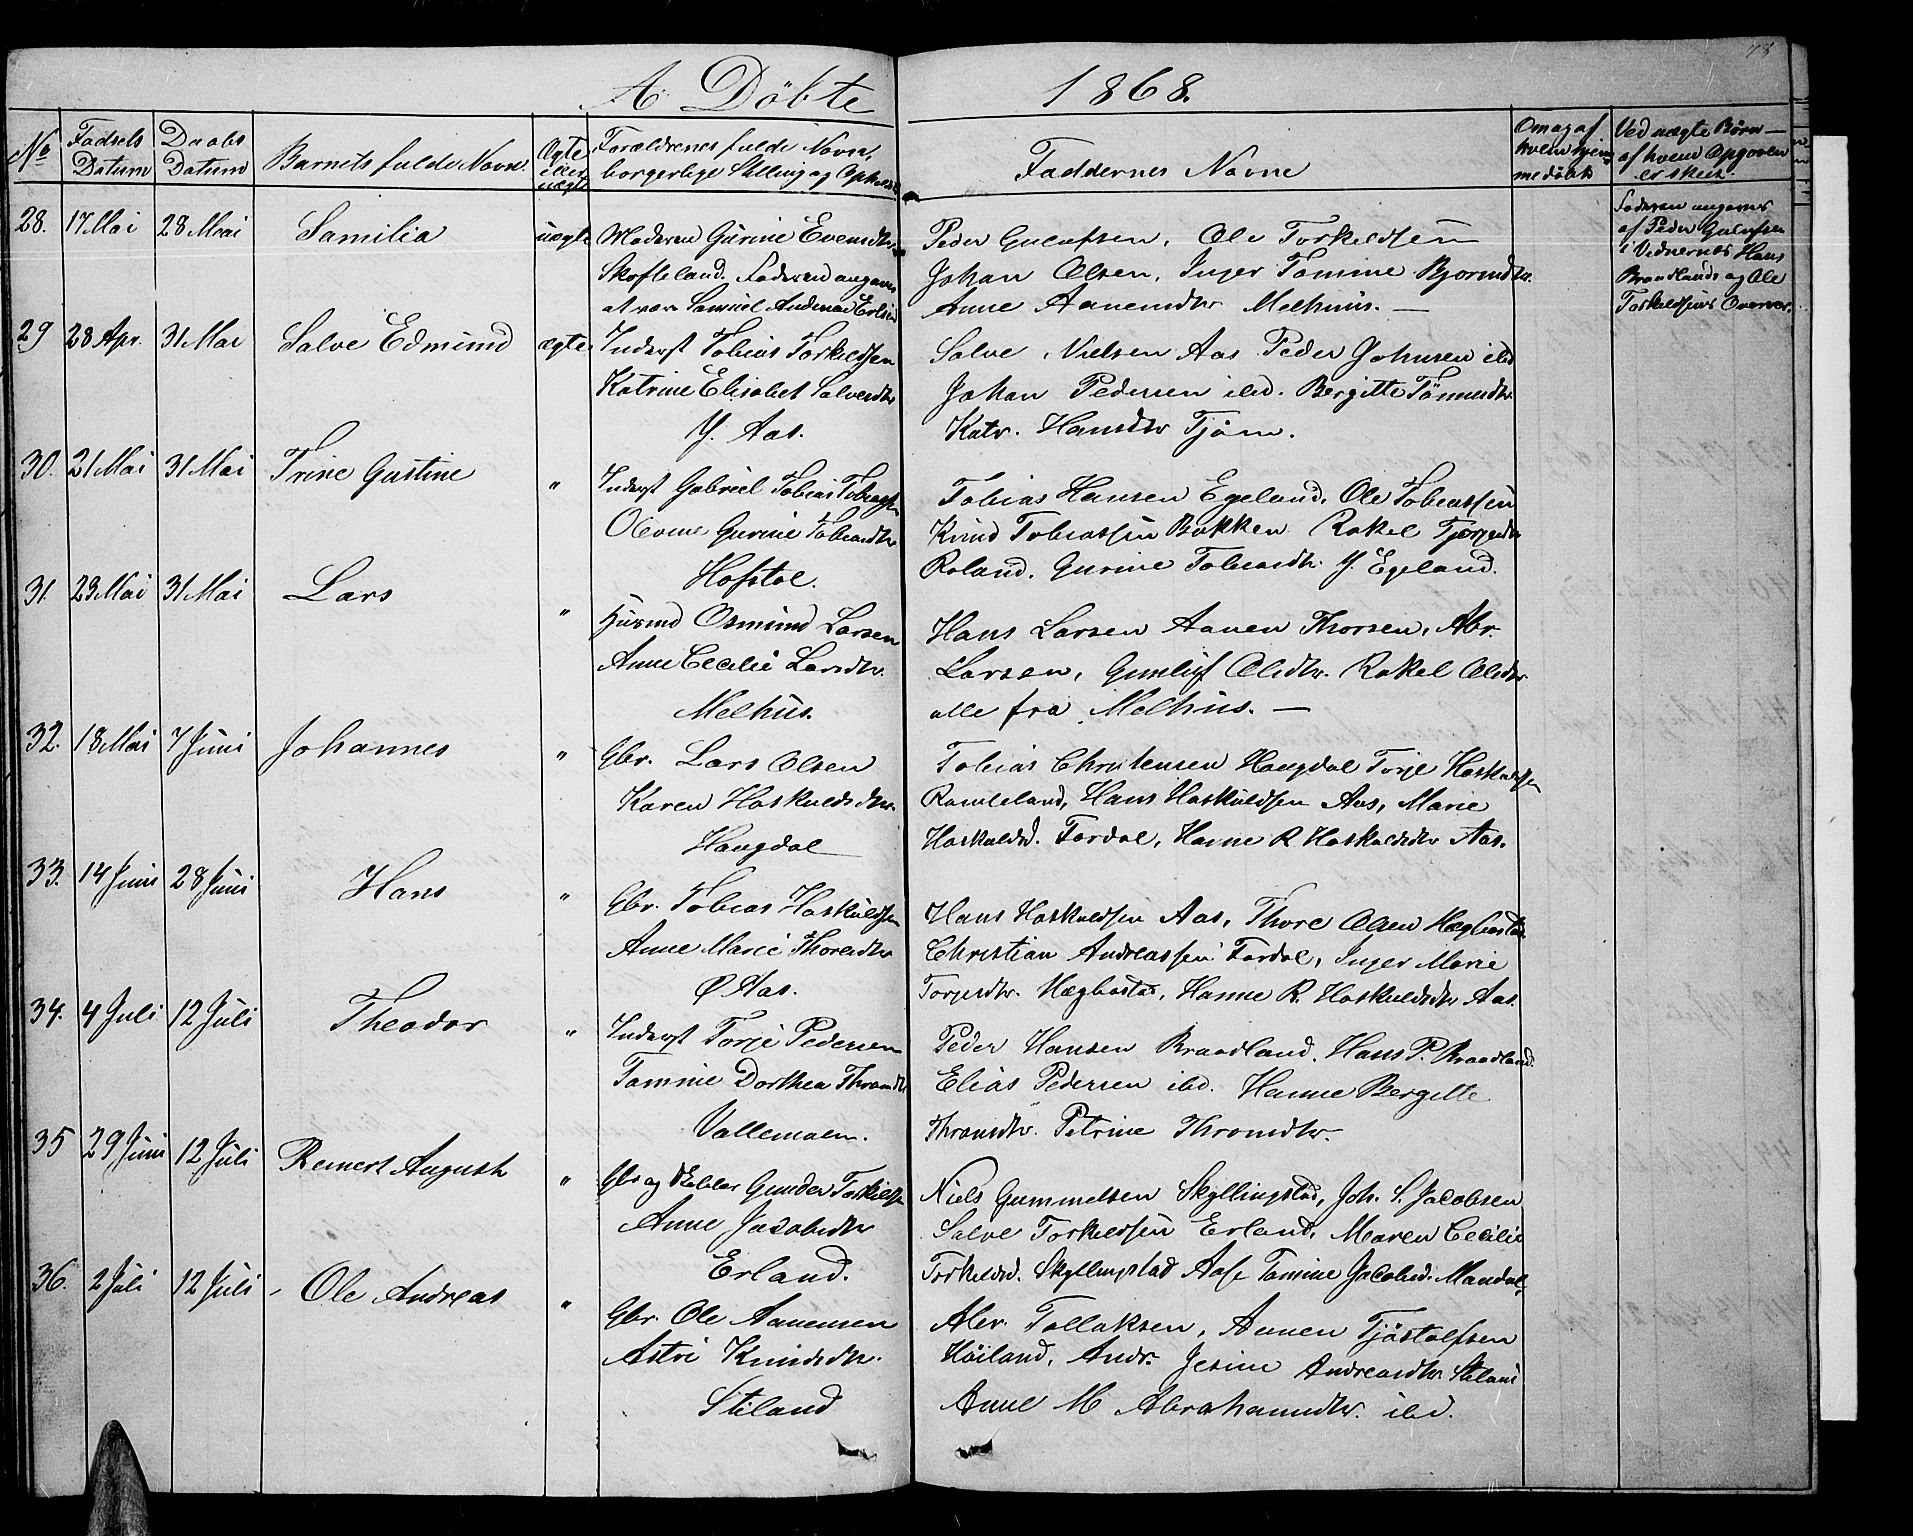 78
A. Döbte 1868.
No
Fødsels Datum
Daabs Datum
Barnets fulde Navn.
Ægte eller uægte
Forældrenes fulde Navn,
borgerlige Stilling og Opholds
Faddernes Navne
Om og af
hvem hjem
medöbt
Ved uægte Børn —
af hvem Opgaven
er skeet.
28. 17 Mai 28 Mai Samilia uægte Moderen Gurine Evensdtr
Skofteland. Faderen angaves
at være Samuel Erland
Peder Gulufsen, Ole Torkeldsen
Johan Olsen, Inger Tomine Bjornsdtr.
Anne Aanensdtr Melhuus. —
Faderen angaves
af Peder Gulufsen
i Vidnernes Hans
Braadlands og Ole
Torkeldsens Overvær.
29 28 Apr. 31 Mai Salve Edmund ægte Inderst Tobias Torkeldsen
Katrine Elisabet Salvesdtr
Y. Aas.
Salve Nielsen Aas Peder Johnsen ibd
Johan Pedersen ibd. Bergitte Tönnesdtr.
Katr. Hansdtr Tjörn.
30. 21 Mai 31 Mai Trine Gustine " Inderst Gabriel Tobias Tobiassen
Olevine Gurine Tobiasdtr
Hofstol.
Tobias Hansen Egeland, Ole Tobiassen
Knud Tobiassen Bakken Rakel Torjesdtr
Roland. Gurine Tobiasdtr. Y. Egeland.
31. 23 Mai 31 Mai Lars " Husmd Osmund Larsen
Anne Cecilie Larsdtr.
Melhus.
Hans Larsen Aanen Thorsen, Abr.
Larsen, Gunluf Olsdtr. Rakel Olsdtr.
alle fra Melhus. —
32. 18 Mai 7 Juni Johannes " Gbr. Lars Olsen
Karen Haskuldsdtr.
Haugdal
Tobias Christensen Haugdal Torje Haskuldsen
Ramleland, Hans Haskuldsen Aas, Marie
Haskuldsd. Fardal, Hanne R Haskuldsdtr Aas.
33. 14 Juni 28 Juni Hans " Gbr. Tobias Haskuldsen
Anne Marie Thoresdtr
Ø Aas.
Hans Haskuldsen Aas, Thore Olsen Hægbostad
Christian Andreassen Fardal, Inger Marie
Torjesdtr. Hægbostad, Hanne R. Haskuldsdtr Aas.
34. 4 Juli 12 Juli Theodor " Inderst Torje Pedersen
Tomine Dorthea Thronsdtr
Vallemoen.
Peder Hansen Braadland. Hans P. Braadland.
Elias Pedersen ibd. Hanne Bergitte
Thronsdtr. Petrine Thronsdtr.
35 29 Juni 12 Juli Reinert August " Gbr og Gunder Torkildsen
Anne Jacobsdtr
Erland.
Niels Gummelsen Skyllingstad, Joh. S. Jacobsen
Salve Torkeldsen Erland, Maren Cecilie
Torkeldsd. Skyllingstad Aase Tomine Jacobsd. Mandal.
36. 2 Juli 12 Juli Ole Andreas " Gbr. Ole Aanensen
Astri Knudsdtr.
Stiland
Abr. Tollaksen, Aanen Tjöstolfsen
Höiland, Andr. Jesine Andreasdtr. Steland
Anne M Abrahamsdtr. ibd.